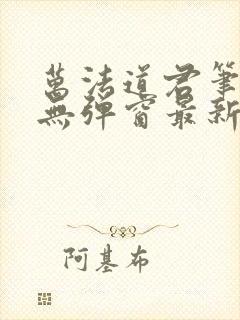 萬法道君筆
無彈窗最新
阿基布